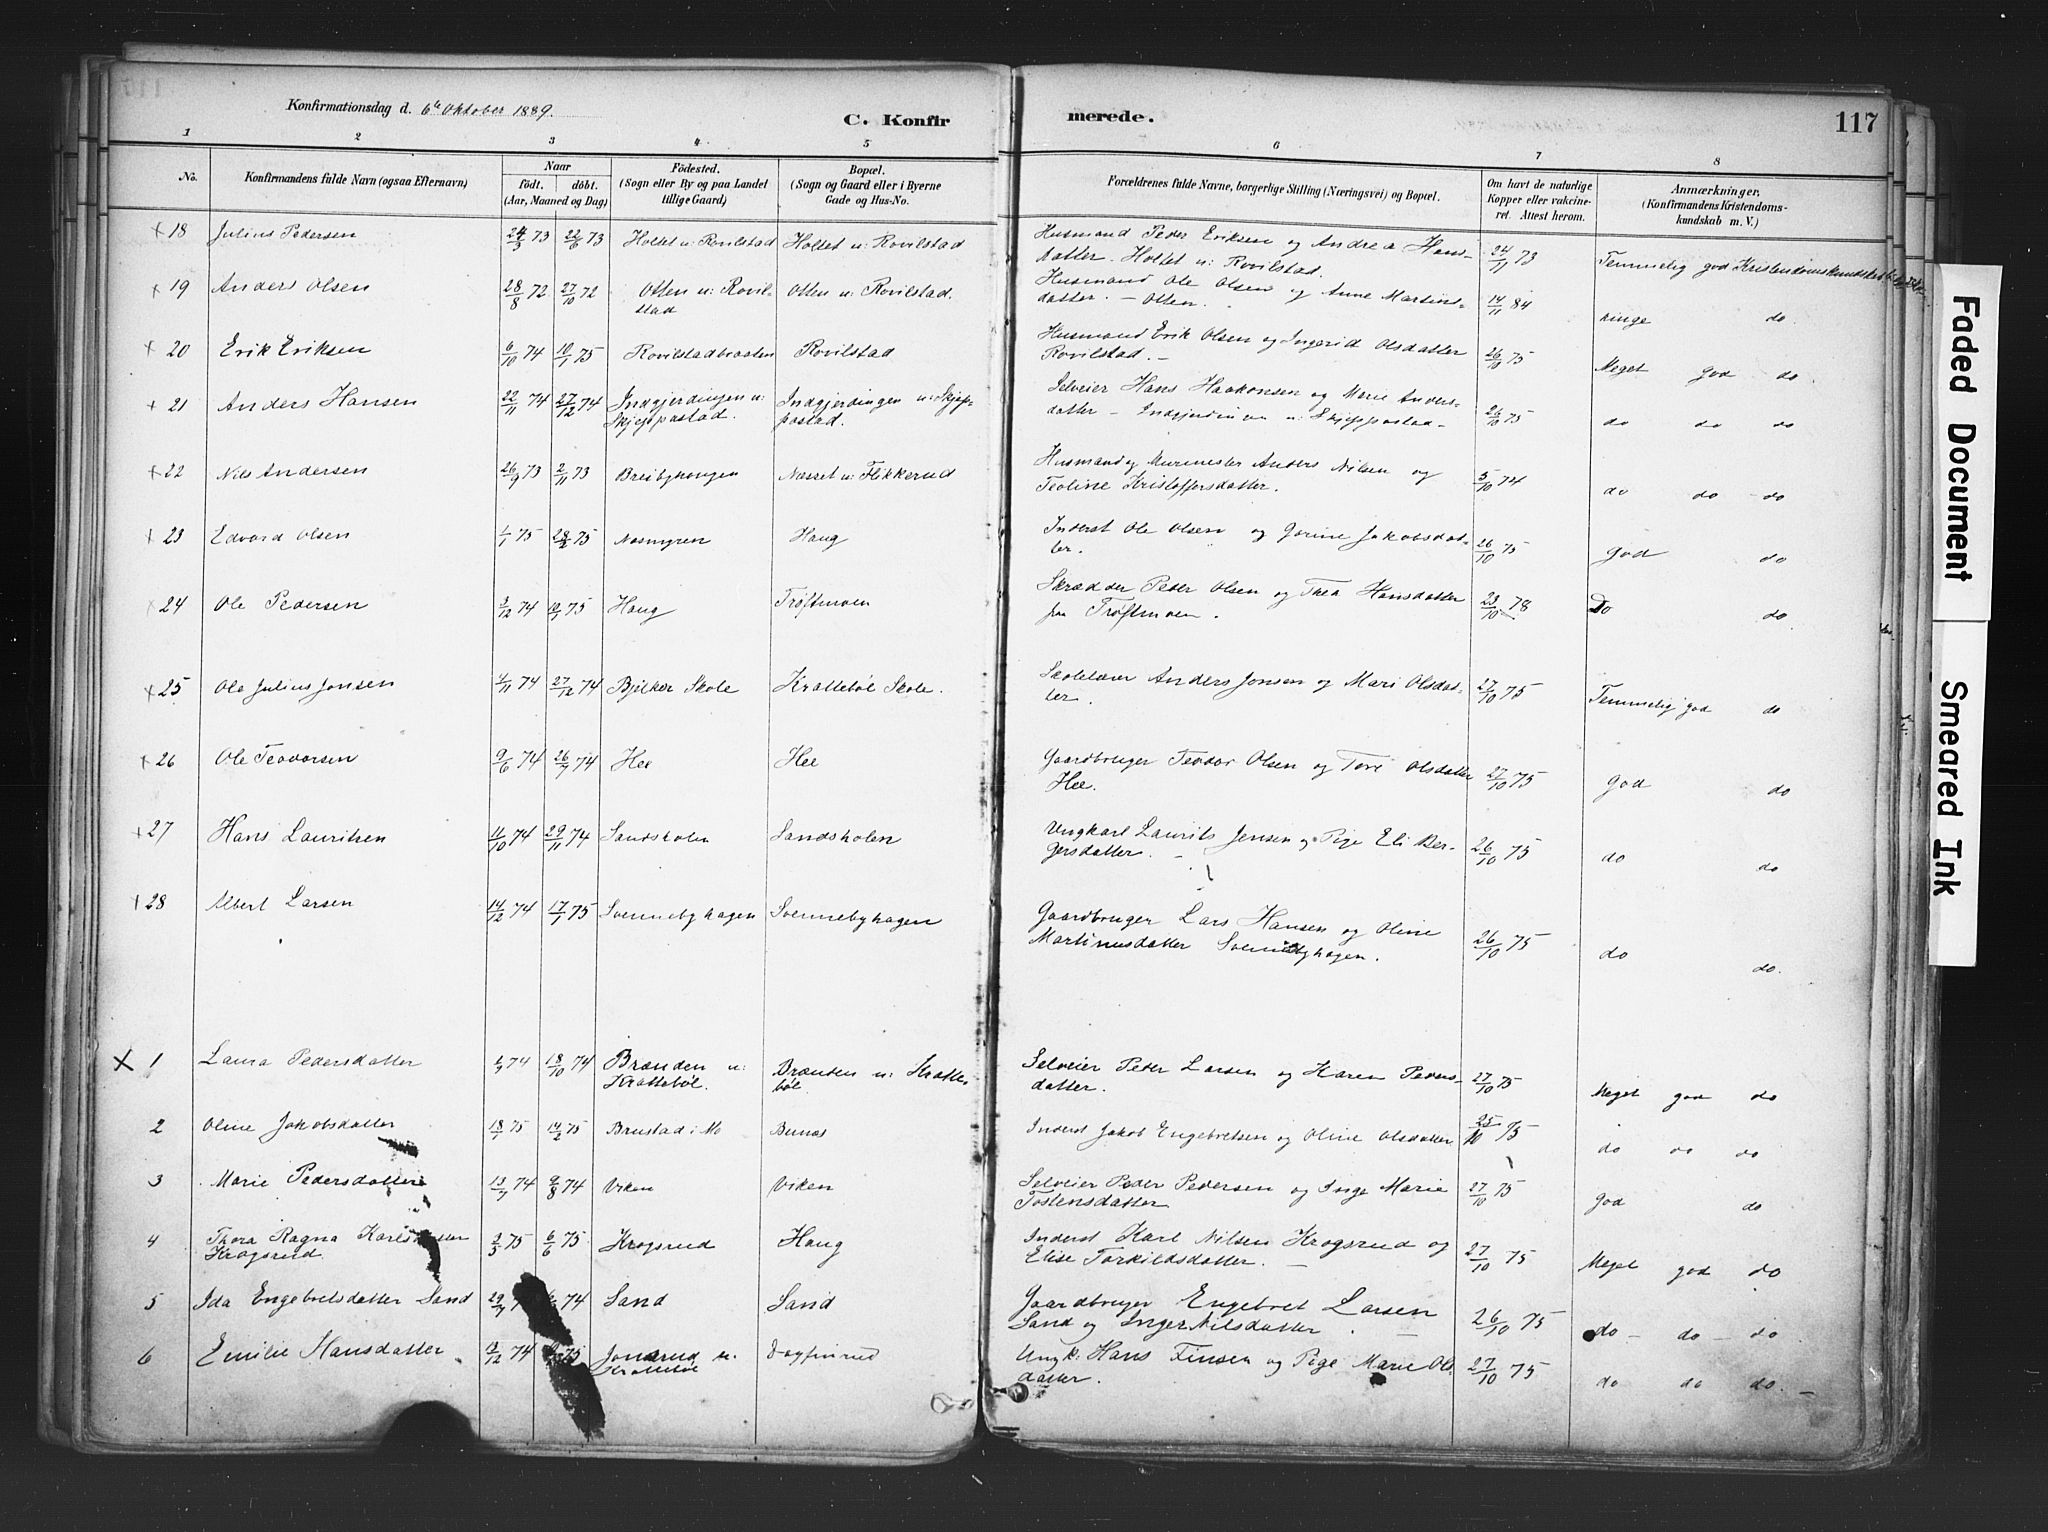 Konfirmationsdag d. 6te Oktober 1889.
C. Konfirmerede.
117
1 2 3 4 5 6 7 8
No.
Konfirmandens fulde Navn (ogsaa Efternavn)
Naar
födt. döbt.
(Aar, Maaned og Dag)
Födested.
(Sogn eller By og paa Landet
tillige Gaard)
Bopæl.
(Sogn og Gaard eller i Byerne
Gade og Hus-No.
Forældrenes fulde Navne, borgerlige Stilling (Næringsvei) og Bopæl.
Om havt de naturlige
Kopper eller vakcine-
ret. Attest herom.
Anmærkninger.
(Konfirmandens Kristendoms-
kundskab m. V.)
x 18 Julius Pedersen 24/5 73 22/6 73 Holtet u: Rovilstad Holtet u: Rovilstad Husmand Peder Eriksen og Andrea Hans- 24/11 73 Temmelig god Kristendomskundskab
datter. Holtet u: Rovilstad.
x 19 Anders Olsen 28/8 72 27/10 72 Otten u: Rovil- Otten u: Rovilstad. Husmand Ole Olsen og Anne Martins- 14/11 84 ringe do
stad datter. – Otten.
x 20 Erik Eriksen 6/10 74 10/1 75 Rovilstadbraaten Rovilstad Husmand Erik Olsen og Ingerid Olsdatter 26/10 75 Meget god do
Rovilstad. –
x 21 Anders Hansen 22/11 74 27/12 74 Indgjerdingen u: Indgjerdingen u: Skjep- Selveier Hans Haakonsen og Marie Anders- 26/10 75 do do do
Skjeppastad. pastad. datter – Indgjerdingen u: Skjeppastad –
x 22 Nils Andersen 26/9 73 2/11 73 Næsset u: Flikkerud Husmand og Murmester Anders Nilsen og 5/10 74 do do – do
Teoline Kristoffersdatter.
x 23 Edvard Olsen 1/1 75 28/2 75 Næsmyren Haug Inderst Ole Olsen og Gorine Jakobsdat- 26/10 75 god do
ter.
x 24 Ole Pedersen 3/12 74 10/1 75 Haug Trøftmoen Skrædder Peder Olsen og Thea Hansdatter 23/10 78 Do do
fra Trøftmoen.
x 25 Ole Julius Jonsen 4/11 74 27/12 74 Bjølker Skole Krattebøl Skole. Skolelærer Anders Jonsen og Mari Olsdat- 27/10 75 Temmelig god do
ter.
x 26 Ole Teodorsen 9/6 74 26/7 74 Hee Hee Gaardbruger Teodor Olsen og Tore Olsdatter 27/10 75 god do
Hee.
x 27 Hans Lauritsen 11/10 74 29/11 74 Sandsholen Sandsholen Ungkarl Laurits Jensen og Pige Eli Ber- 26/10 75 do do
gersdatter. –
x 28 Albert Larsen 14/12 74 17/1 75 Svennebyhagen Svennebyhagen Gaardbruger Lars Hansen og Oline 26/10 75 do do.
Martinusdatter Svennebyhagen.
x 1 Laura Pedersdatter 18/10 74 Brænden u: Brænden u: Kratte- Selveier Peder Larsen og Karen Peders- 27/10 75 Meget god do
Krattebøl. bøl datter.
2 Oline Jakobsdatter 18/1 75 14/2 75 Brustad i Mo Bunæs Inderst Jakob Engebretsen og Oline Olsdatter 25/10 75 do do do
3 Marie Pedersdatter 13/7 74 9/8 74 Viken Viken Selveier Peder Pedersen og Inge Marie 27/10 75 god do
Tostensdatter
4 Thora Ragna Karlsdatter 2/5 75 6/6 75 Krogsrud Haug Inderst Karl Nilsen Krogsrud og 27/10 75 Meget god do
Krogsrud Elise Torkildsdatter. –
5 Ida Engebretsdatter Sand 29/7 74 Sand Sand Gaardbruger Engebret Larsen 26/10 75 do – do – do
Sand og Inger Nilsdatter. –
6 Emilie Hansdatter 13/12 74 75 Jonsrud u. Dagfinrud Ungk: Hans Finsen og Pige Marie Ols- 27/10 75 do do do. –
Krattebøl datter.
Faded Document
Smeared Ink